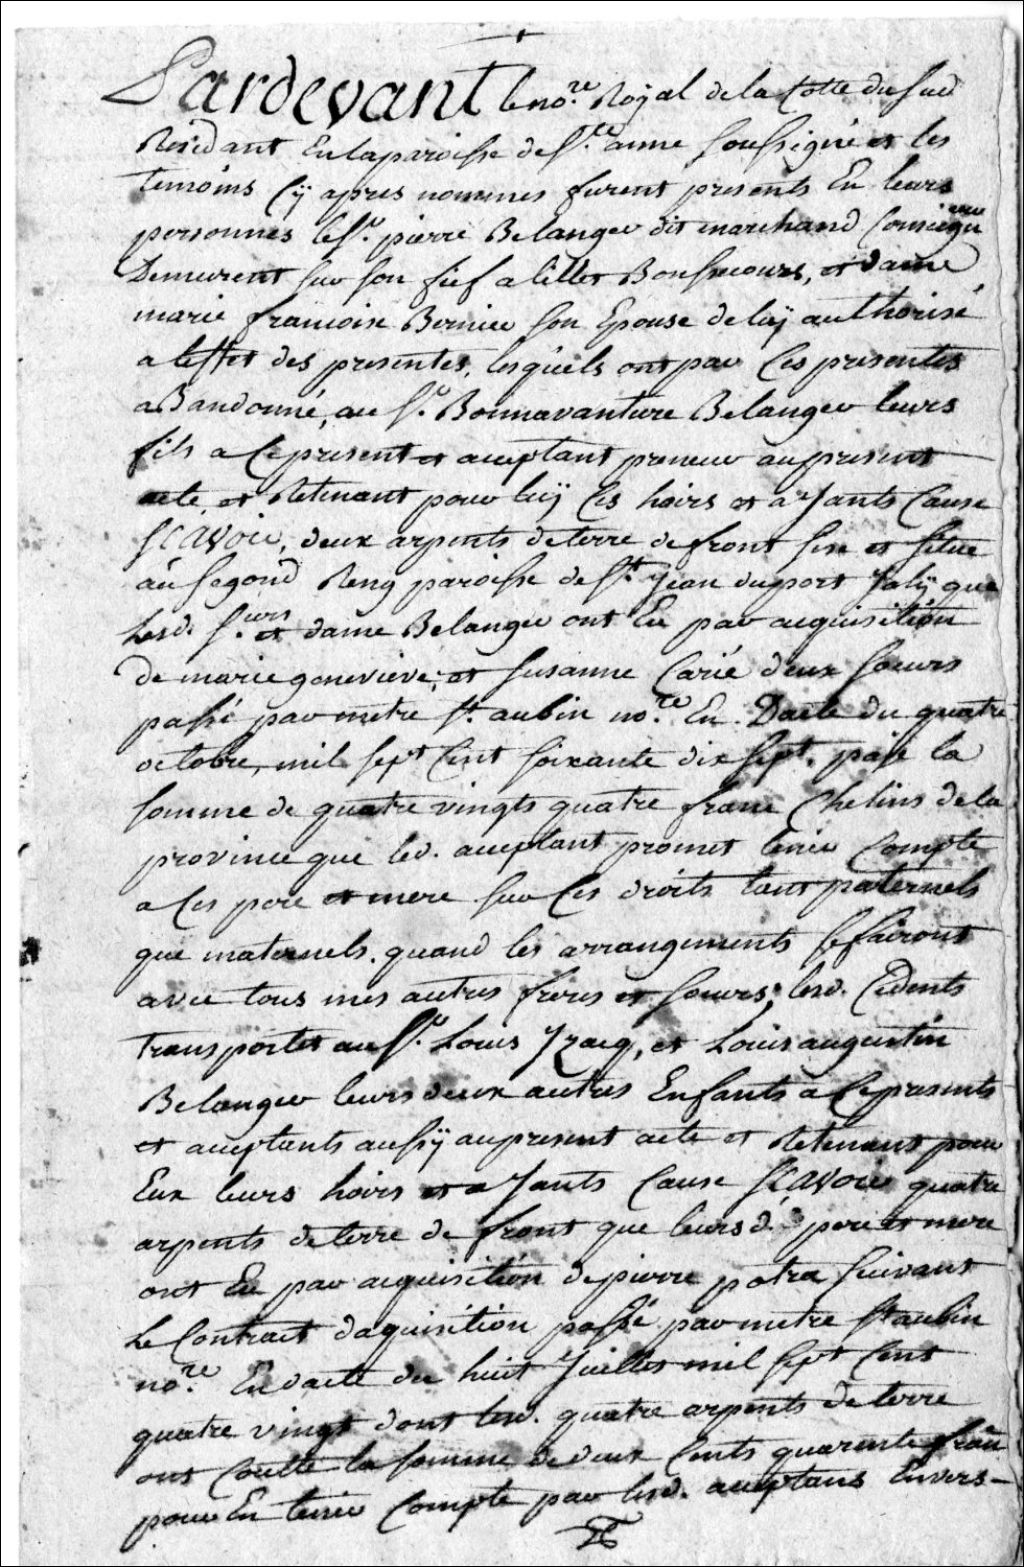 Pardevant le no.re Royal de la Cotte du sud
Residant En la paroisse de Ste anne soussigné et les
temoins Cÿ apres nommes furent presents En leurs
personnes le Sr. pierre Belanger dit marchand
Demeurent sur son fief a lillet Bonsecours, et dame
marie francoise Bernier son Epouse de luÿ authorisé
a leffet des presentes, lesquels ont par Ces presentes
aBandonné, au Sr. Bonnavanture Belanger leurs
fils a Ce present et aceptant preneur au present
acte, et Retenant pour luÿ Ces hoirs et aÿants Cause
SCAVoir, deux arpents de terre de front sise et situé
au segond Reng paroisse de St. Jean du port Jolÿ, que
lesd. S.iurs et dame Belanger ont Eu par acquisition
De marie genevieve, et susanne Carié deux soeurs
passé par metre St. aubin no.re En Datte du quatre
octobre, mil sept Cent soixante dix sept. pour la
somme de quatre vingts quatre franc Chelins de la
province que led. aceptant promet tenir Compte
a Ces pere et mere sur Ces droits tant paternels
que maternels. quand les arrangements se fairont
avec tous mes autres freres et soeurs; lesd. Cedents
transportet au Sr. Louis Yzacq, et Louis augustin
Belanger leurs deux autres Enfants a Ce presents
et aceptants aussÿ au present acte et Retenant pour
Eux leurs hoirs et aÿants Cause SCAVoir quatre
arpents de terre de front que leursd. pere et mere
ont Eu par acquisition de pierre potra suivant
Le Contract daquisition passé par metre St aubin
no.re En datte du huit Juillet mil sept Cent
quatre vingt dont lesd. quatre arpents De terre
ont Coutté la somme De deux Cents quarente fran
pour En tenir Compte par lesd. aceptans Envers-